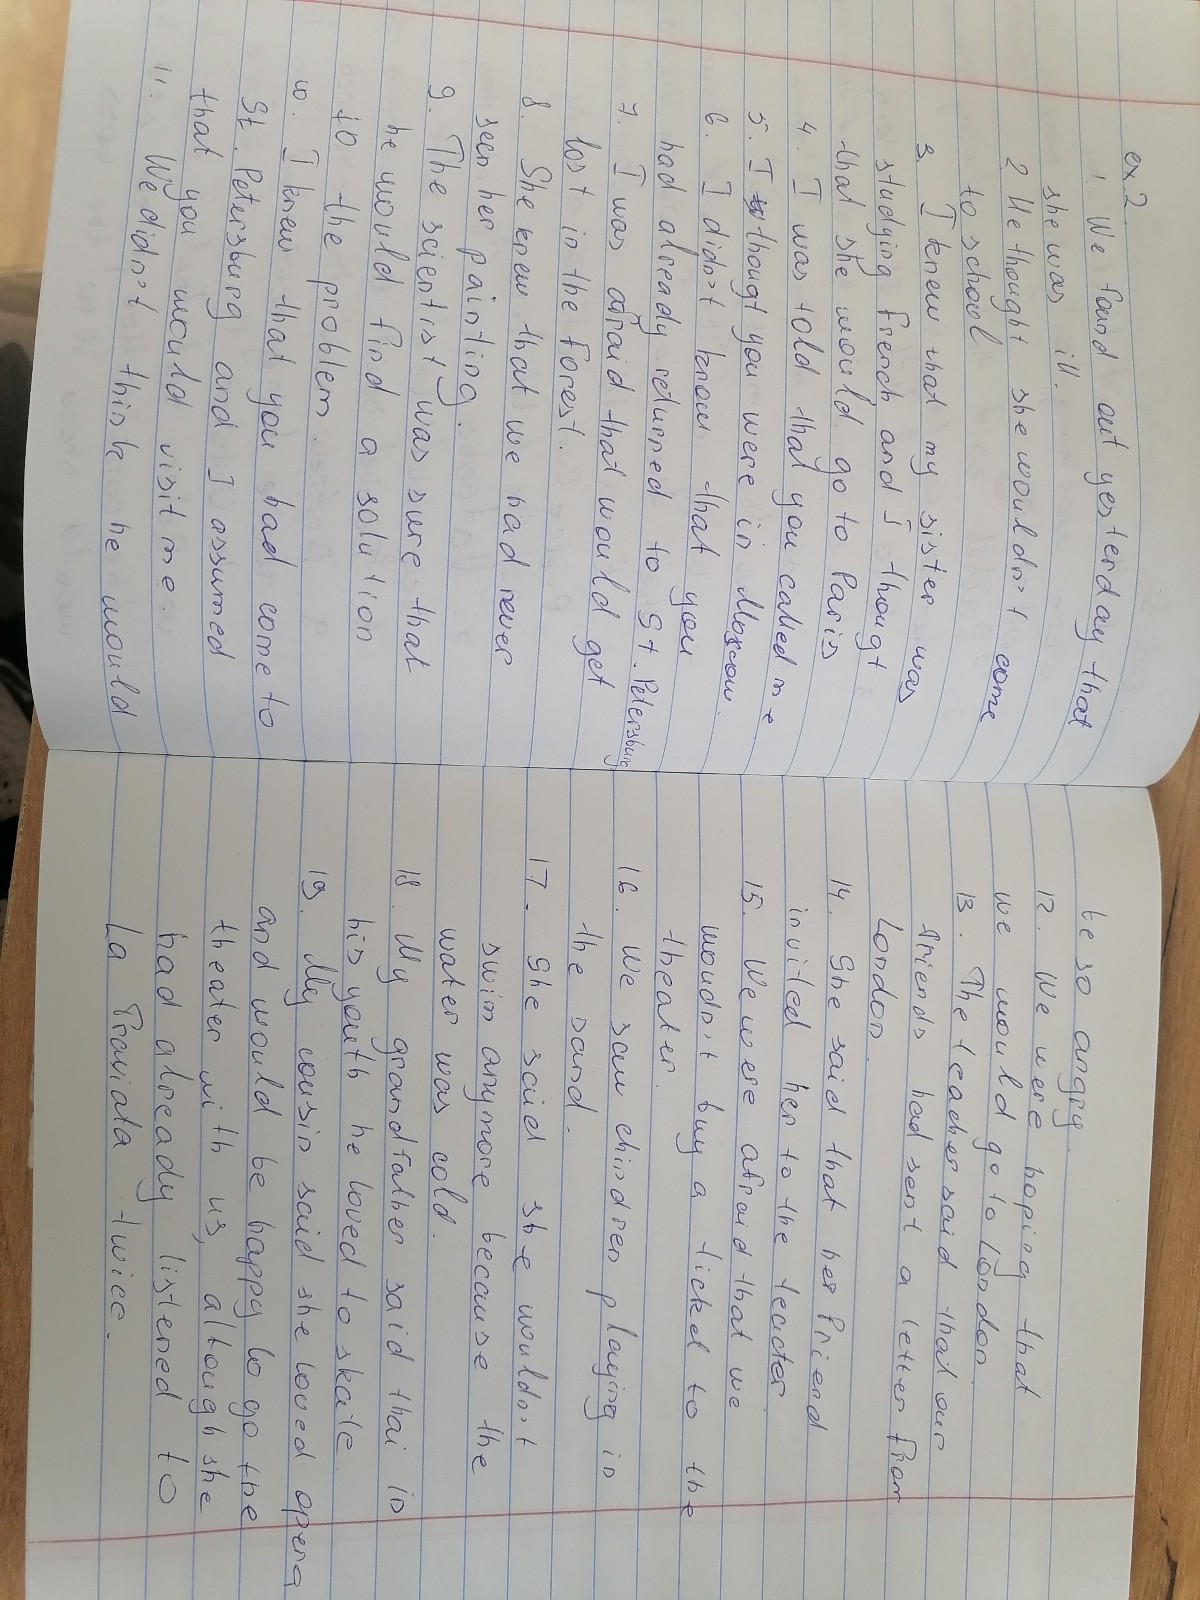 ex 2.
1. We found out yesterday that
she was ill.
2 He thought she wouldn't come
to school
3. I knew that my sister was
studying French and I thougt
that she would go to Paris
4. I was told that you called me
5. I thougt you were in Moscow.
6. I didn't know that you
had already returned to St. Petersburg
7. I was afraid that would get
lost in the forest.
8. She knew that we had never
seen her painting.
9. The scientist was sure that
he would find a solution
to the problem.
10. I knew that you had come to
St. Petersburg and I assumed
that you would visit me.
11. We didn't think he would
be so angry.
12. We were hoping that
we would go to London.
13. The teacher said that our
friends had sent a letter from
London.
14. She said that her friend
invited her to the teacter
15. We were afraid that we
woudn't buy a ticket to the
theater.
16. We saw children playing in
the sand.
17. She said she wouldn't
swim anymore because the
water was cold.
18. My grandfather said that in
his youth he loved to skate.
19. My cousin said she loved opera
and would be happy to go the
theater with us, altough she
had already listened to
La Traviata twice.